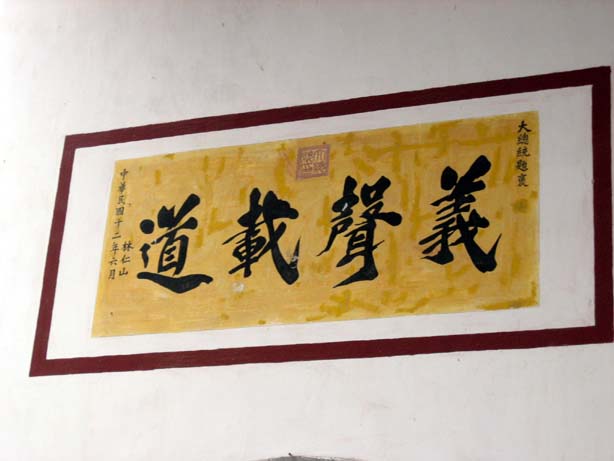 大總統題褒
義聲載道
林仁山
中華民國十二年六月